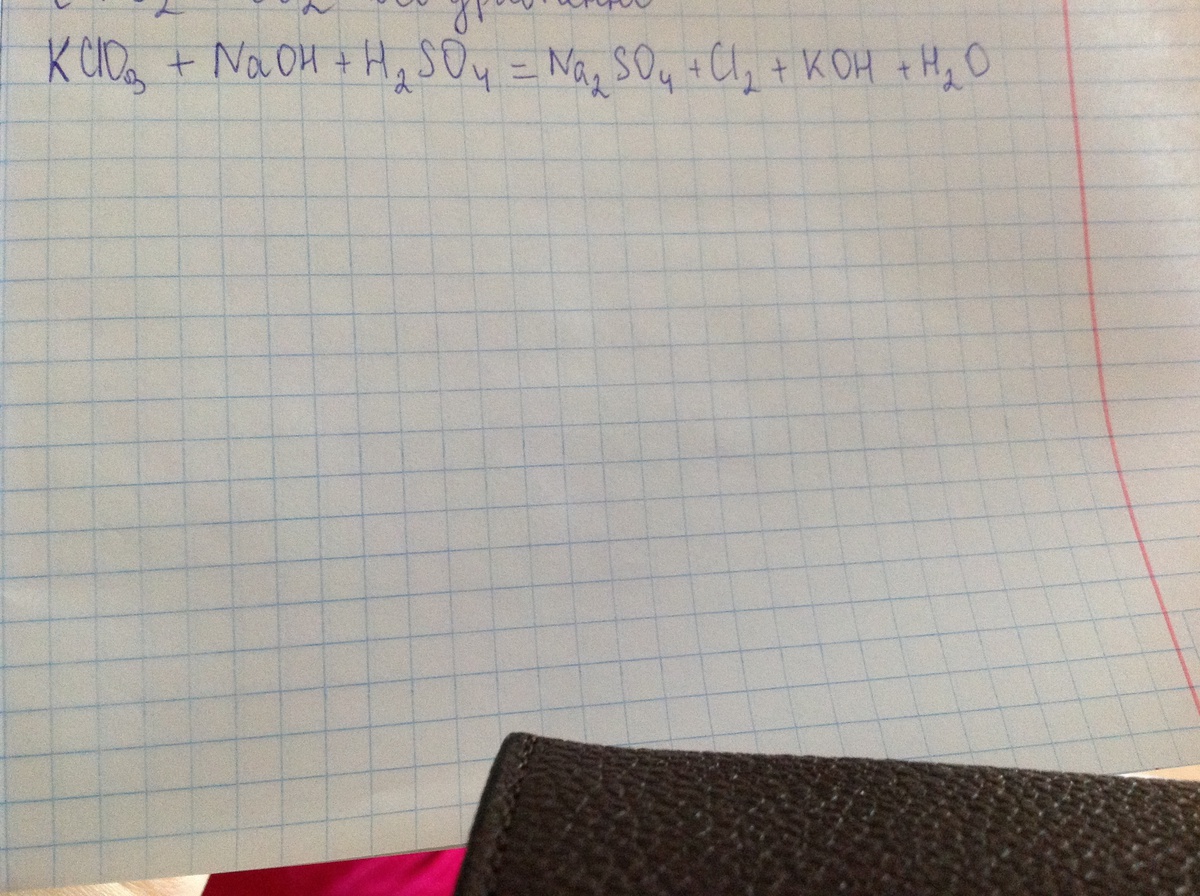 KClO₃ + NaOH + H₂SO₄ = Na₂SO₄ + Cl₂ + KOH + H₂O